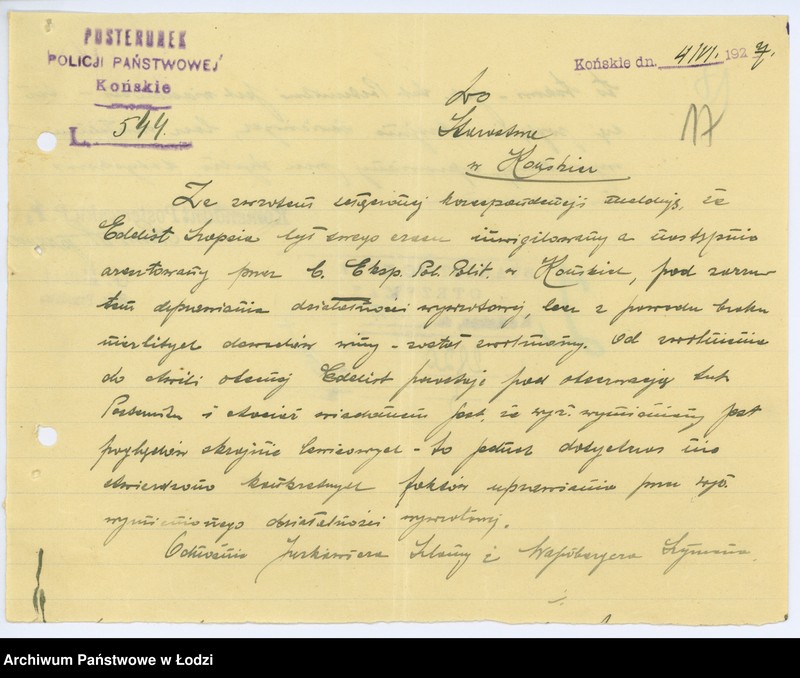 POSTERUNEK
POLICJI PAŃSTWOWEJ
Końskie
L. 544.
Końskie dn. 4/VI. 1927.
Do
Starostwa
w Końskich
17
Ze zwrotem korespondencji melduję, że
Edelist był swego czasu inwigilowany a następnie
aresztowany przez b. Eksp. Pol. Polit. w Końskich, pod zarzu-
tem uprawiania działalności wywrotowej, lecz z powodu braku
niezbitych dowodów winy - został zwolniony. Od zwolnienia
do chwili obecnej Edelist pozostaje pod obserwacją tut.
Posterunku i chociaż wiadomem jest, że wyż. wymieniony jest
poglądów skrajnie lewicowych - to jednak dotychczas nie
stwierdzono konkretnych faktów uprawiania przez wyż.
wymienionego działalności wywrotowej.
Odnośnie Jurkiewicza i Szymona
Archiwum Państwowe w Łodzi